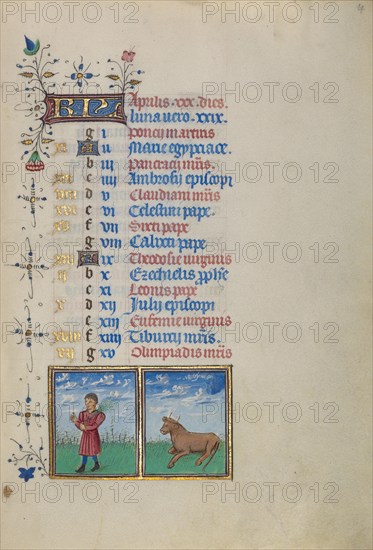 KL Aprilis · xxx · dies ·
luna vero · xxix ·
g i Poncii martiris
A ii Marie egypciace ·
b iii Pancracii mr̄is ·
c iiii Ambrosii episcopi
d v Claudiani mr̄is
e vi Celestini pape ·
f vii Sixti pape
g viii Calixti pape
A ix Theodosie virginis
b x Ezechielis pphe
c xi Leonis pape
x d xii Julii episcopi
e xiii Eufemie virginis
xviii f xiiii Tiburcii mr̄is ·
vii g xv Olimpiadis mr̄is
PHOTO 12